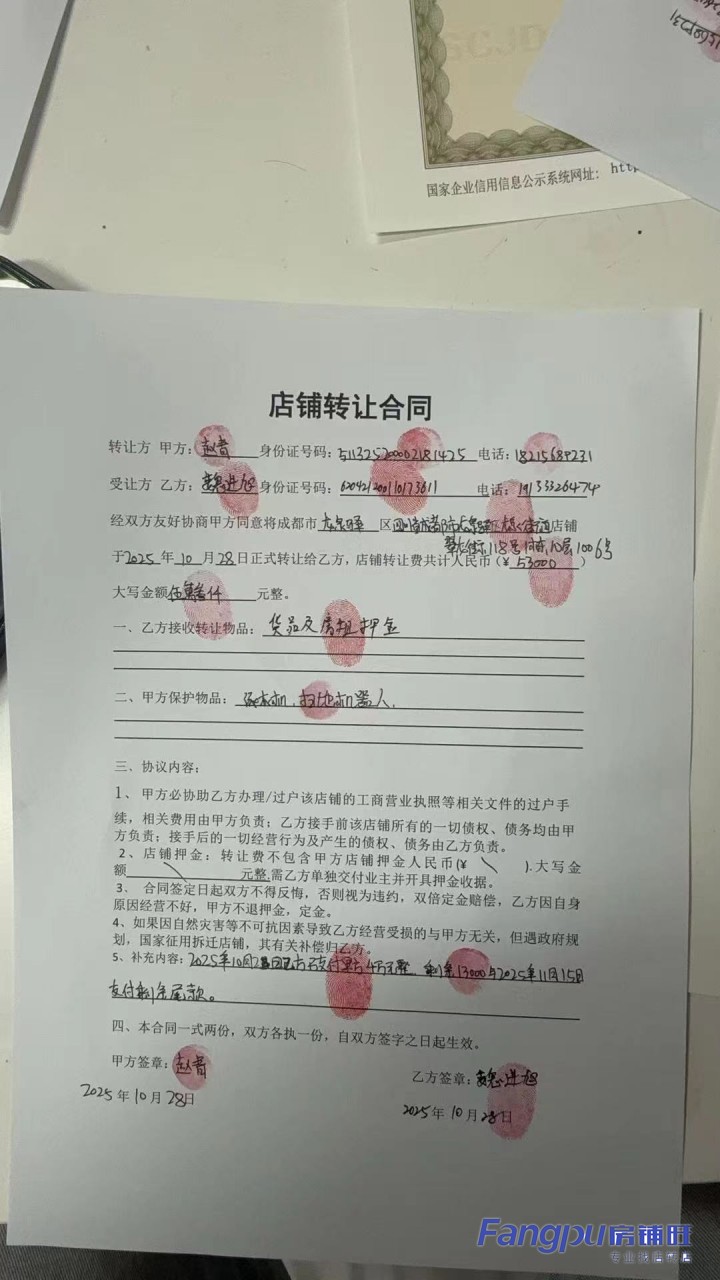 国家企业信用信息公示系统网址：htt
店铺转让合同
转让方 甲方：赵香 身份证号码：511325200002181425 电话：18215689231
受让方 乙方：魏进旭 身份证号码：620421200110173611 电话：19133326474
经双方友好协商甲方同意将成都市 龙泉驿 区四川省成都市龙泉驿区 街道店铺
118号1栋10层1006号
于2025年10月28日正式转让给乙方，店铺转让费共计人民币（¥ 53000 ）
大写金额伍萬叁仟 元整。
一、乙方接收转让物品： 货品及房租押金
二、甲方保护物品： 扫地机器人、
三、协议内容：
1、甲方必协助乙方办理/过户该店铺的工商营业执照等相关文件的过户手
续，相关费用由甲方负责；乙方接手前该店铺所有的一切债权、债务均由甲
方负责；接手后的一切经营行为及产生的债权、债务由乙方负责。
2、店铺押金：转让费不包含甲方店铺押金人民币(¥ \ ).大写金
额 \ 元整.需乙方单独交付业主并开具押金收据。
3、 合同签定日起双方不得反悔，否则视为违约，双倍定金赔偿，乙方因自身
原因经营不好，甲方不退押金，定金。
4、如果因自然灾害等不可抗因素导致乙方经营受损的与甲方无关，但遇政府规
划，国家征用拆迁店铺，其有关补偿归乙方。
5、补充内容：2025年10月28日乙方已支付甲方4万元整、剩余13000与2025年11月15日
支付剩余尾款。
四、本合同一式两份，双方各执一份，自双方签字之日起生效。
甲方签章：赵香
乙方签章：魏进旭
2025年10月28日
2025年10月28日
Fangpu房铺旺
专业找店转店